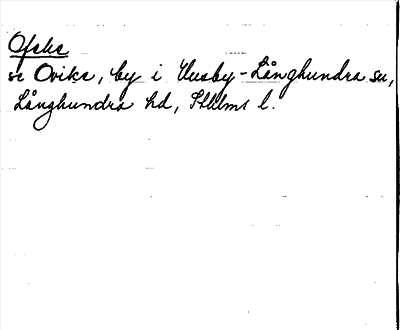 Ofeke
se Ovike, by i Husby-Långhundra sn,
Långhundra hd, Sthlms l.